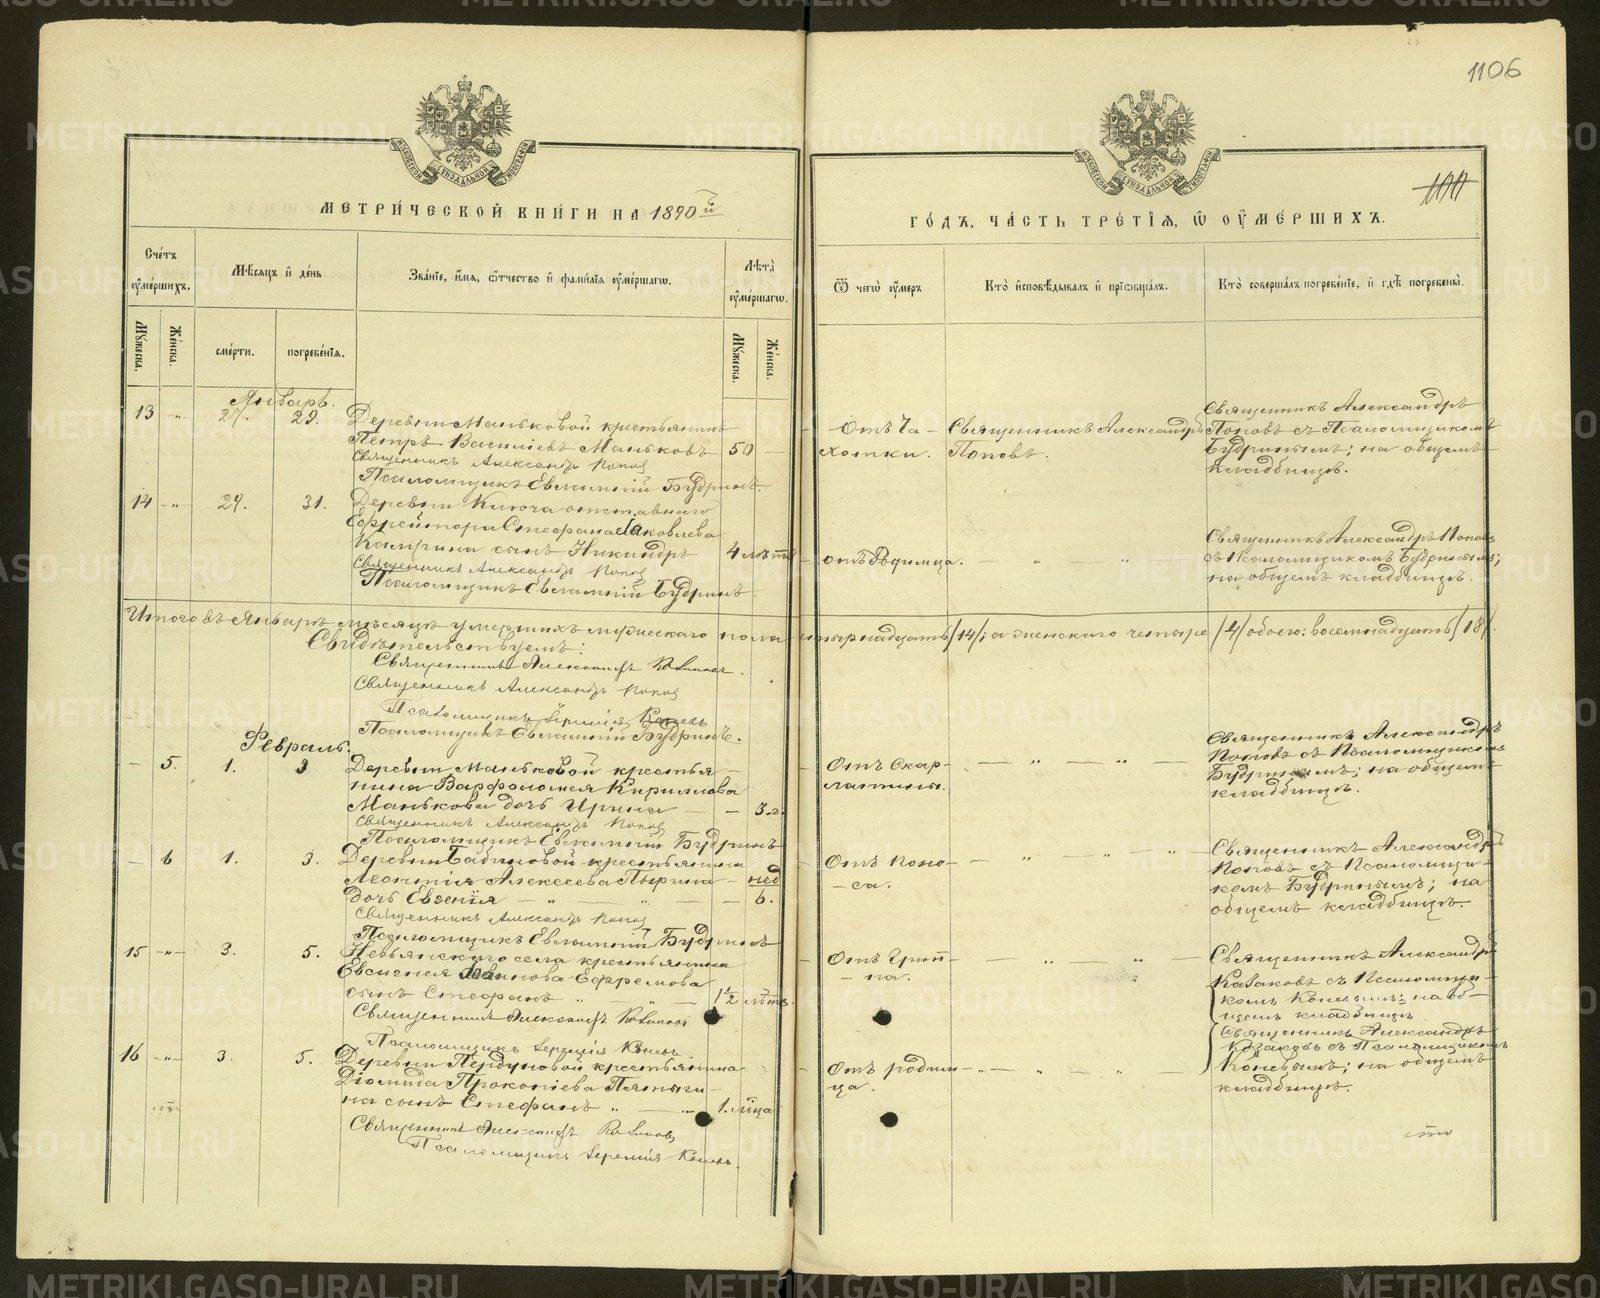 1106
100
МЕТРИ́ЧЕСКОЙ КНИ́ГИ НА 1890й
ГО́ДЪ, ЧА́СТЬ ТРЕ́ТІѦ, Ѿ ОУ҆МЕ́РШИХЪ.
Сче́тъ оу҆ме́ршихъ.
Мѣ́сяцъ и҆ де́нь
Зва́ніе, и҆́мя, ѻ҆́тчество и҆ фами́лія оу҆ме́ршагѡ.
Лѣ́та оу҆ме́ршагѡ.
Ѿ чегѡ̀ оу҆́меръ
Кто̀ и҆сповѣ́дывалъ и҆ прїѡбща́лъ.
Кто̀ соверша́лъ погребе́ніе, и҆ гдѣ̀ погребены̀.
Му́жеска.
Же́нска.
сме́рти.
погребе́нія.
Му́жеска.
Же́нска.
Январь.
13 -„- 27. 29. Деревни Маньковой крестьянинъ
Петръ Василіевъ Маньковъ 50 —
Священникъ Александръ Поповъ
Псаломщикъ Евлампій Будринъ.
Отъ ча-
хотки.
Священникъ Александръ
Поповъ.
Священникъ Александръ
Поповъ съ Псаломщикомъ
Будринымъ; на общемъ
кладбищѣ.
14 -„- 29. 31. Деревни Ключа отставнаго
Ефрейтора Стефана Іаковлева
сынъ Никандръ 4 лѣтъ
Священникъ Александръ Поповъ
Псаломщикъ Евлампій Будринъ.
отъ Родимца. — „ „
Священникъ Александръ Поповъ
съ Псаломщикомъ Будринымъ;
на общемъ кладбищѣ.
Итого въ Январѣ мѣсяцѣ умершихъ мужескаго пола четырнадцать /14/; а женскаго четыре /4/ обоего: восемнадцать /18/.
Свидѣтельствуемъ:
Священникъ Александръ Козаковъ.
Священникъ Александръ Поповъ
Псаломщикъ Іеремія Коневъ
Псаломщикъ Евлампій Будринъ.
Февраль.
— 5. 1. 3 Деревни Маньковой крестья-
нина Варфоломея Кириллова
Манькова дочь Ирина — — 3.г.
Священникъ Александръ Поповъ
Псаломщикъ Евлампій Будринъ
Отъ скар-
латины.
— „ — „ —
Священникъ Александръ
Поповъ съ Псаломщикомъ
Будринымъ; на общемъ
кладбищѣ.
— 6 1. 3. Деревни Бабиновой крестьянина
Леонтія Алексеева Пырина — нед
дочь Евгенія — „ „ — — 6.
Священникъ Александръ Поповъ
Псаломщикъ Евлампій Будринъ
Отъ поно-
са.
— „ — „ — „ —
Священникъ Александръ
Поповъ съ Псаломщи-
комъ Будринымъ; на
общемъ кладбищѣ.
15 -„- 3. 5. Невьянскаго села крестьянина
Евсигнея Іоаннова Ефремова
сынъ Стефанъ „ „ — 1½ лѣтъ.
Священникъ Александръ Козаковъ
Псаломщикъ Іеремія Коневъ.
Отъ Грип-
па.
— „ „ —
Священникъ Александръ
Казаковъ съ Псаломщи-
комъ Коневымъ; на об-
щемъ кладбищѣ
16 -„- 3. 5. Деревни Пердуновой крестьянина
Діомида Прокопіева Пятыги-
на сынъ Стефанъ „ — „ 1. мѣсяца
Священникъ Александръ Козаковъ
Псаломщикъ Іеремія Коневъ.
Отъ родим-
ца.
— „ — „ — „ —
Священникъ Александръ
Козаковъ съ Псаломщикомъ
Коневымъ; на общемъ
кладбищѣ.
METRIKI.GASO-URAL.RU